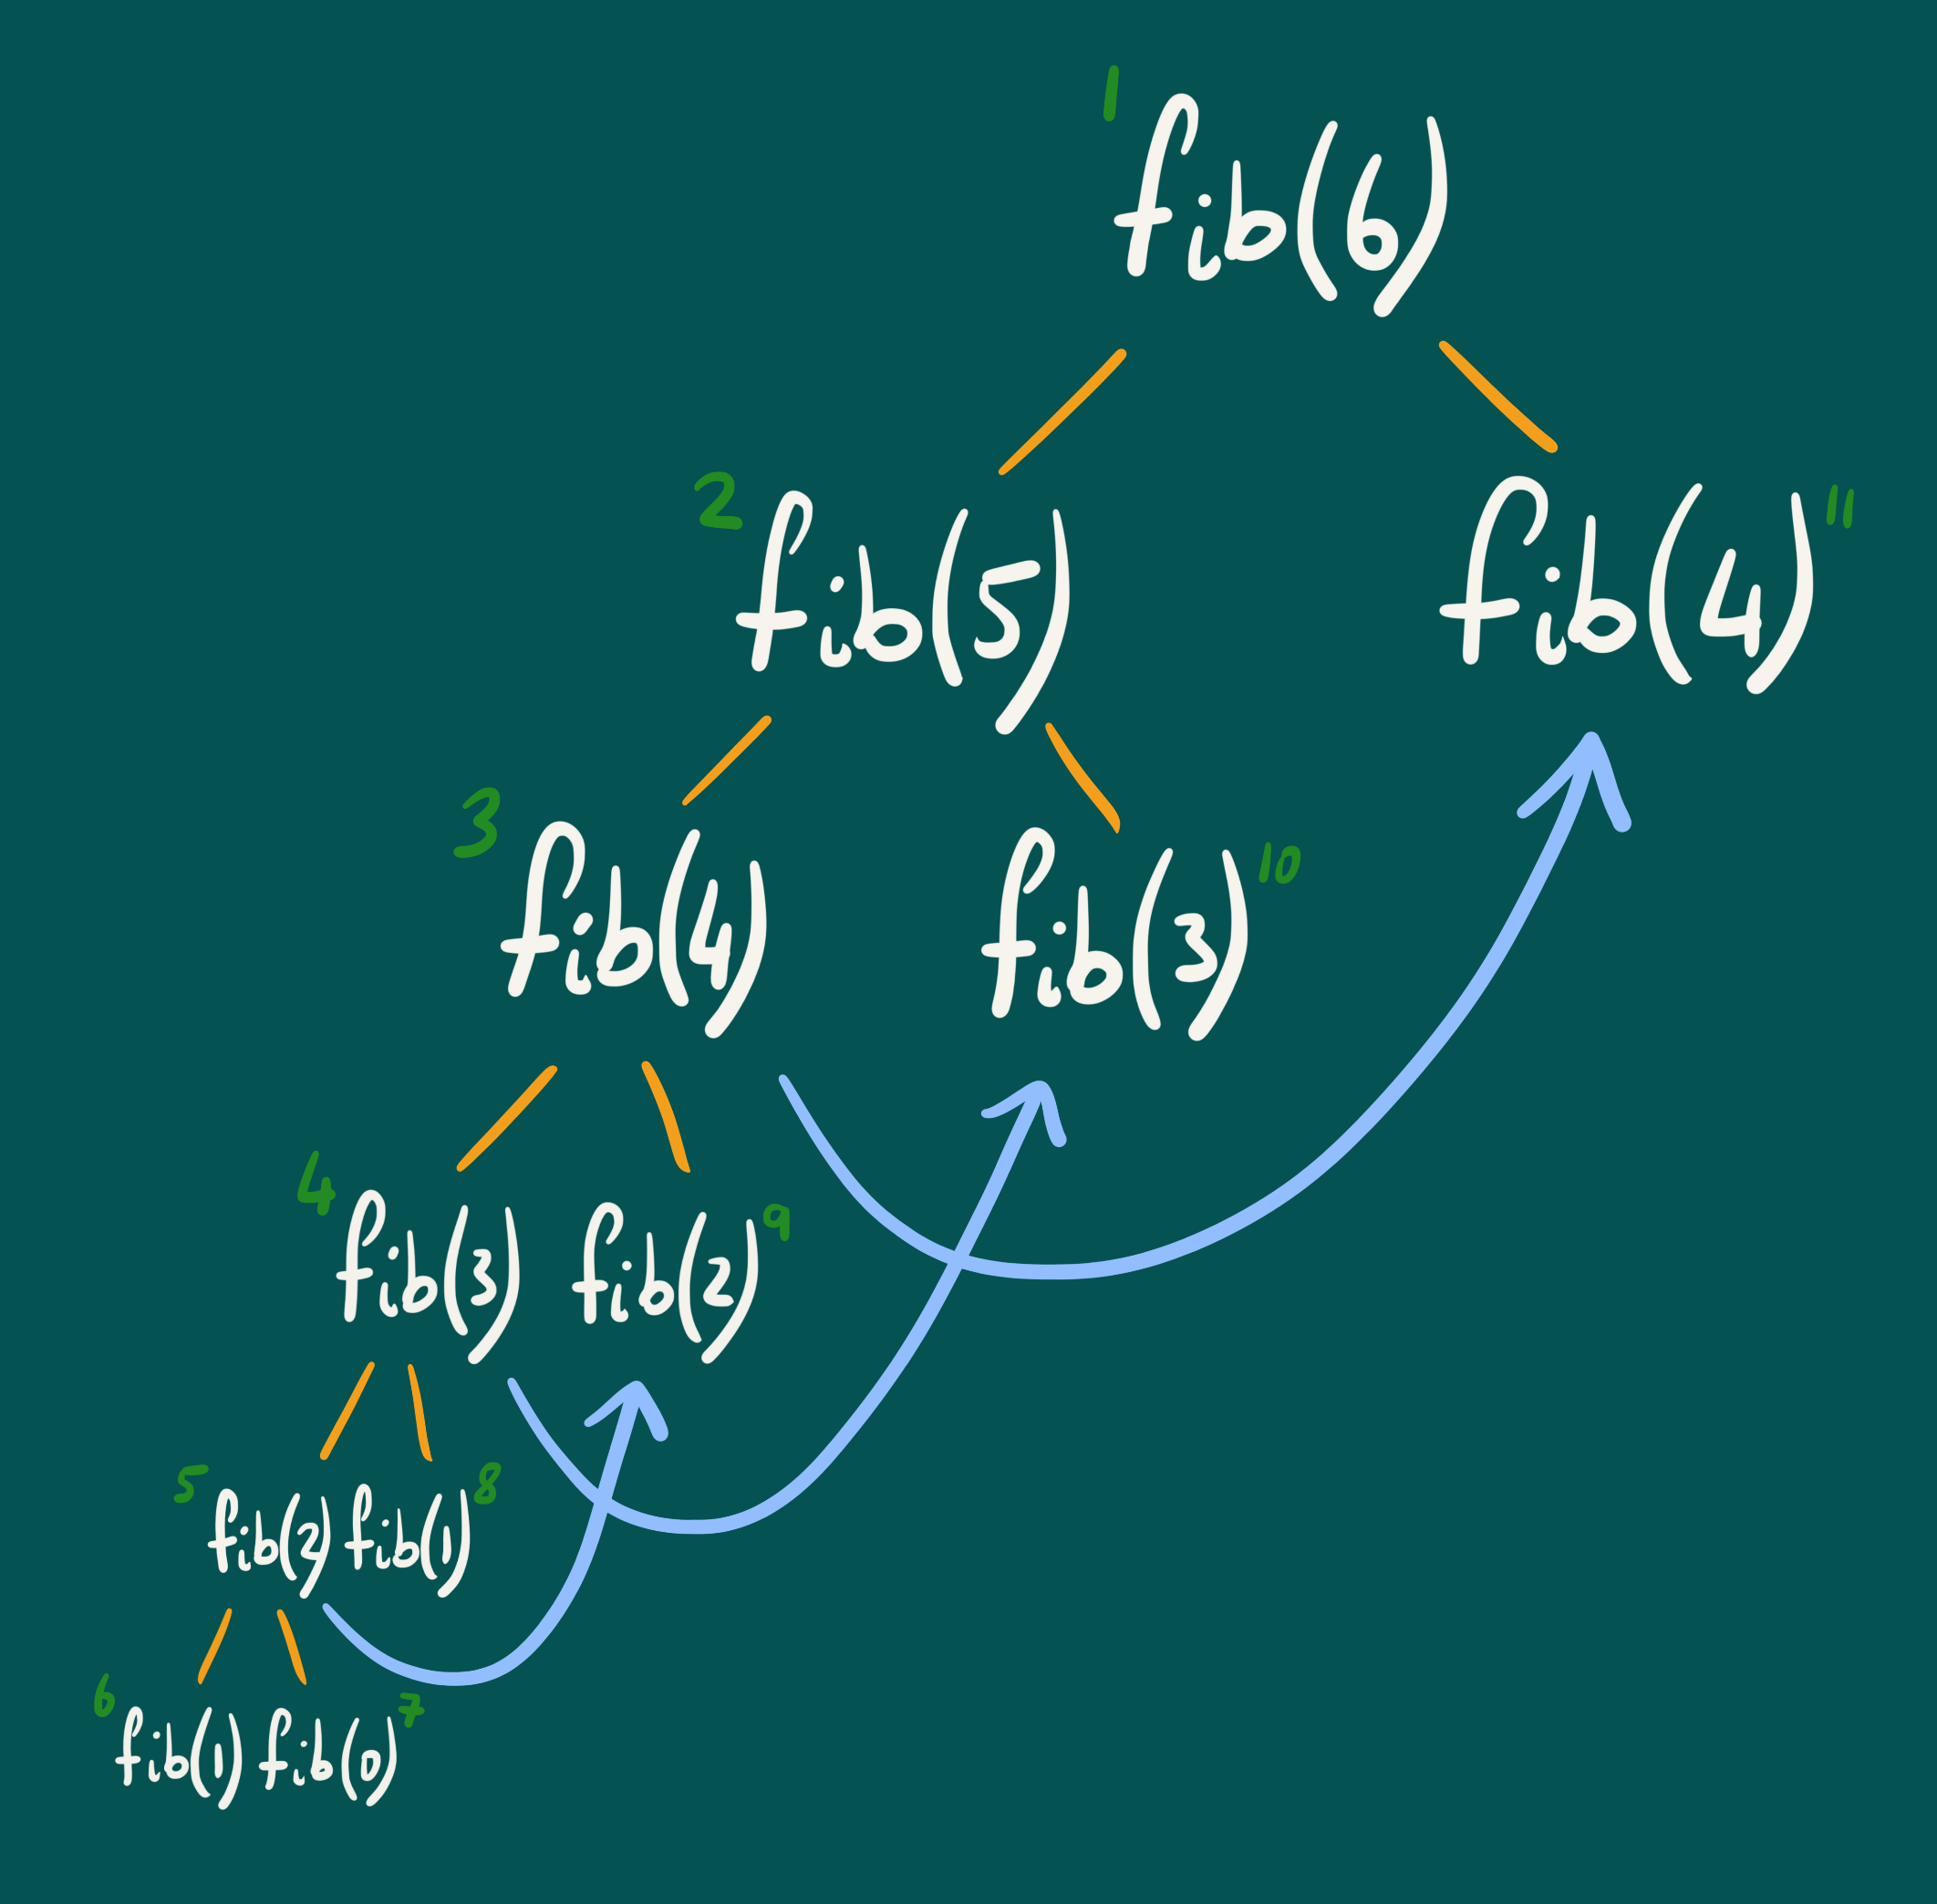 1
fib(6)
2 fib(5) fib(4) 11
3 fib(4) fib(3) 10
4 fib(3) fib(2) 9
5 fib(2) fib(1) 8
6 fib(1) fib(0) 7